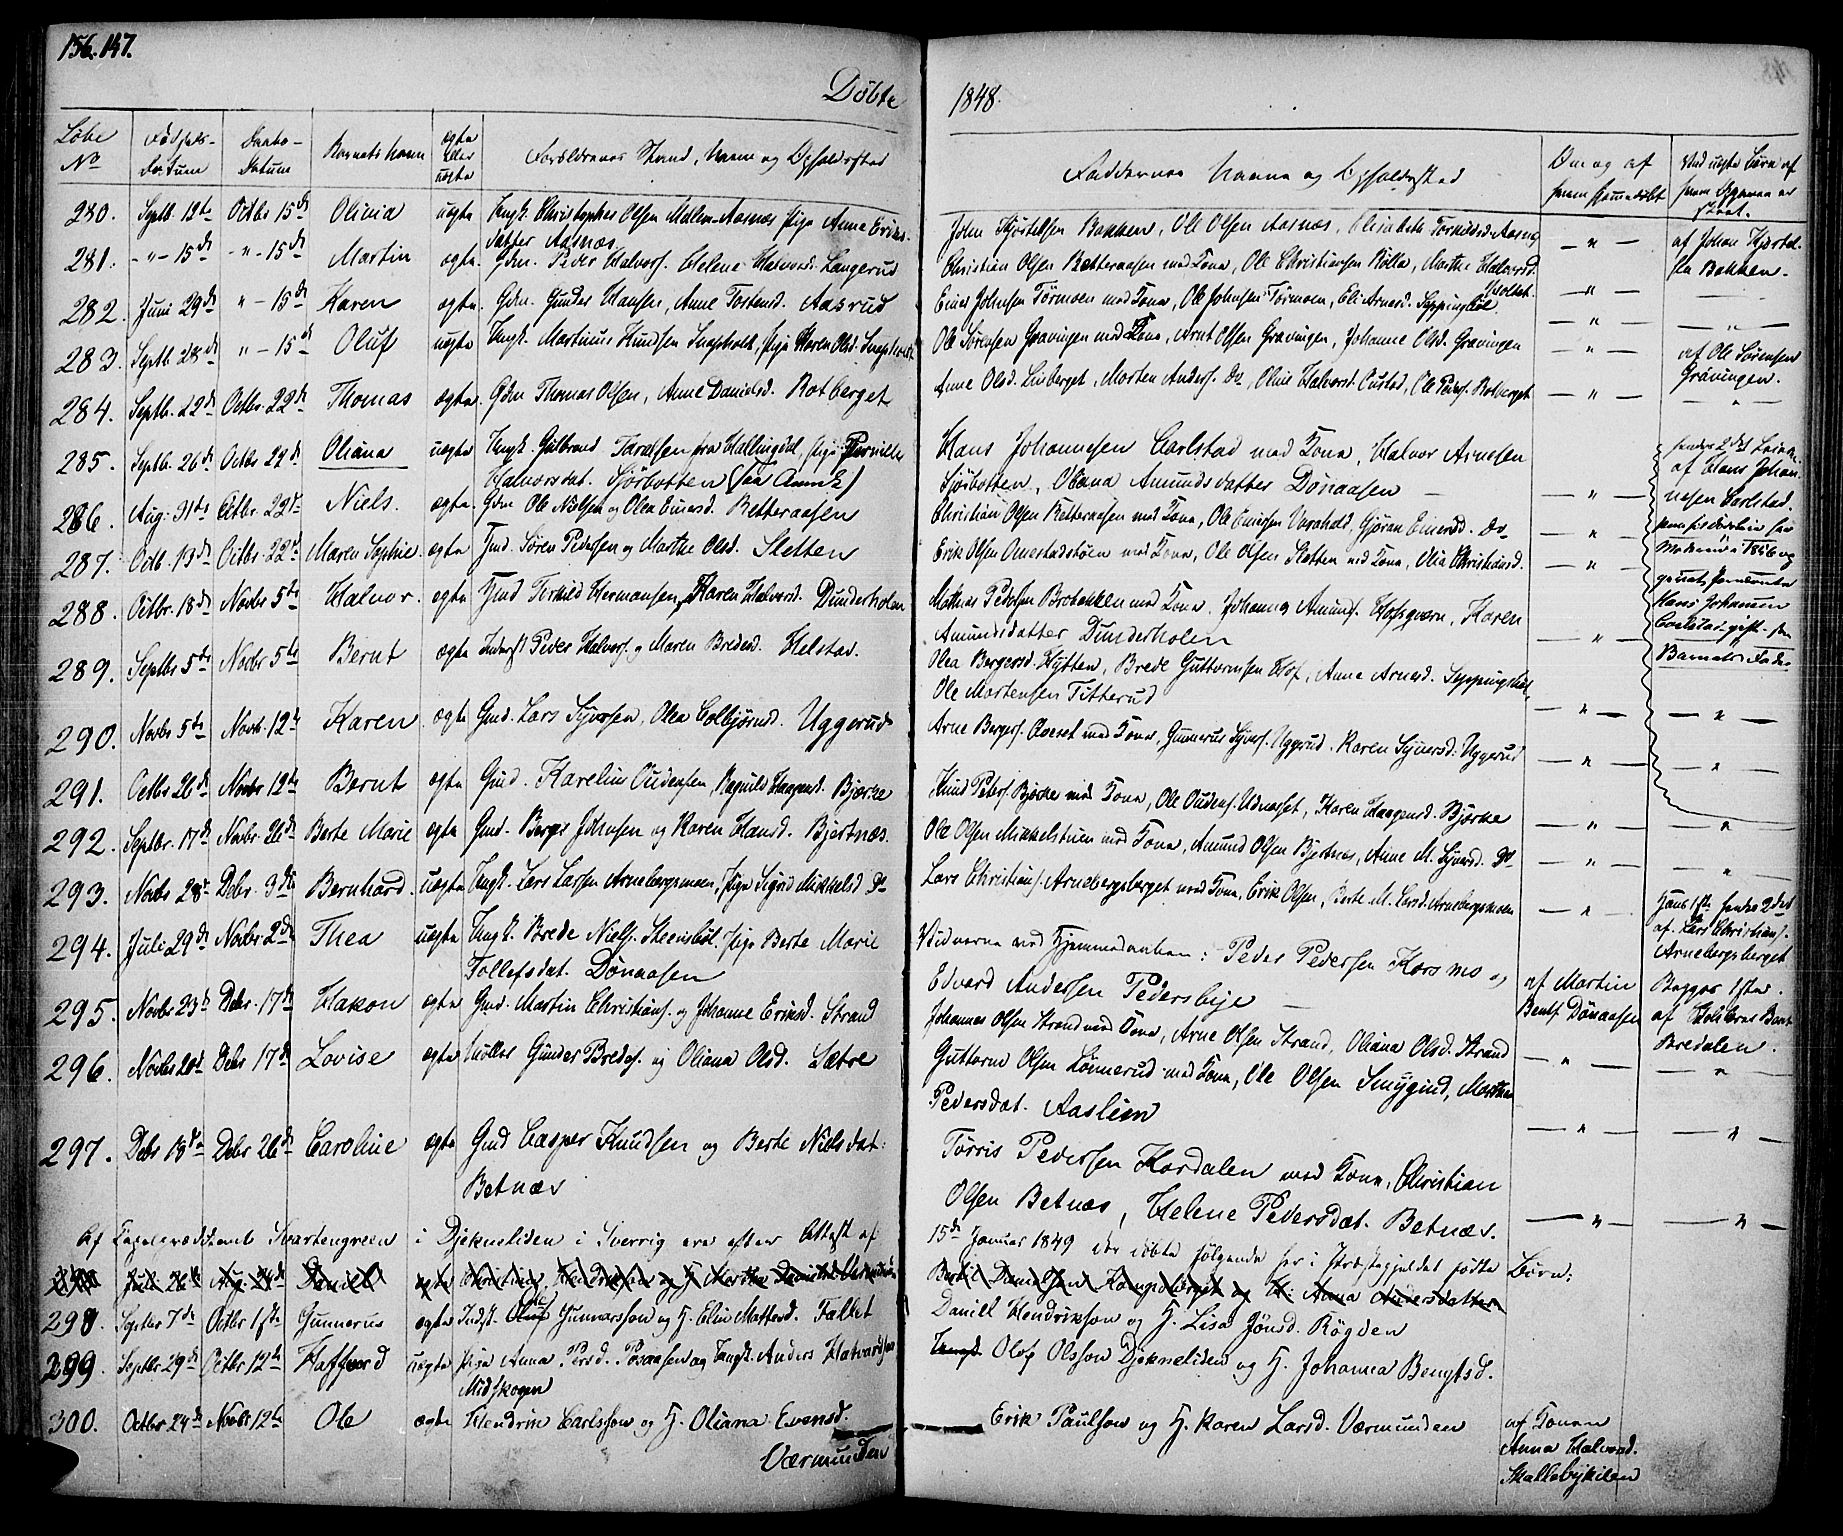 156. 147.
Døbte
1848.
Løbe No
Fødsels-Datum
Daabs-Datum
Barnets Navn
ægte eller uægte
Forældrenes Stand, Navn og Opholdssted
Faddernes Navne og Opholdssted
Om og af hvem hjemmedøbt
Ved uægte Børn af hvem Opgaven er skeet.
280. Septb. 12te Octbr 15de Olivia uægte Ungk. Christopher Olsen Malem-Aasnæs, Pige Anne Eriks-
datter Aasnæs
John Kjøstelsen Bakken, Ole Olsen Aasnæs, Elisabeth Torkildsd. Aasnæs — " — af Johan Kjøstel-
sen Bakken.
281. -"- 15de -"- 15de Martin ægte Gdm. Peder Halvors. Helene Halvorsd. Langerud
Christian Olsen Retteraasen med Kone, Ole Christiansen Rølla, Marthe Halvorsd. — " —
282. Juni 29de " - 15de Karen ægte Gdm. Gunder Hansen, Anne Tostensd. Aasrud
Einer Johnsen Tørmoen med Kone, Ole Johnsen Tørmoen, Eli Arnesd. Syppingbøl — " —
283. Septb. 28de " - 15de Oluf uægte Ungk. Martinus Knudsen Snapholt, Pige Karen Olsd. Snapholt
Ole Sørensen Gravingen med Kone, Arnt Olsen Gravingen, Johanne Olsd. Gravingen — " — af Ole Sørensen
Gravingen.
284. Septb. 22de Octbr. 22de Thomas ægte Gdm Thomas Olsen, Anne Danielsd. Rotberget
Anne Olsd. Linberget, Morten Anders. Do, Oline Halvorsd. Oustad, Ole Peders. Rotberget — " —
285. Septb. 26de Octbr 22de Oliana uægte Ungk. Gulbrand Taralsen fra Hallingdal, Pige Pernille
Halvorsdat. Sjørbotten
Hans Johannesen Carlstad med Kone, Halvor Arnesen
Sjørbotten, Oliana Amundsdatter Dønaasen — " —
af Hans Johan-
nesen Carlstad.
286. Aug: 31te Octbr. 22de Niels. ægte. Gdm Ole Nilsen og Olea Einersd. Retteraasen
Christian Olsen Retteraasen med Kone, Ole Einersen Varahold, Gjøran Einersd. Do — " —
287. Octb. 13de Octbr. 22de Maren Sophie ægte Hmd. Søren Pedersen og Marthe Olsd. Sletten
Erik Olsen Omestadstøen med Kone, Ole Olsen Sletten med Kone, Olia Christiansd. — " —
288. Octbr. 18de Novbr 5te Halvor. ægte Hmd Torkild Hermansen, Karen Halvorsd. Dunderholen
Mathias Pedersen Brobakken med Kone, Johannes Amunds. Hofsqværn, Karen
Amundsdatter Dunderholen — " —
289. Septbr 5te Novbr 5te Bernt ægte Inderst Peder Halvors. og Maren Bredesd. Helstad.
Olea Bergersd. Hytten, Brede Guttormsen Hof, Anne Arnesd. Syppingsbøl
Ole Mortensen Titterud — " —
290. Novbr 5te Novbr. 12te Karen ægte Gmd. Lars Syversen, Olea Colbjørnsd. Uggerud
Arne Bergers. Qveset med Kone, Gunnerus Syvers. Uggerud, Karen Syversd. Uggerud — " —
291. Octbr 26de Novbr 12te Bernt ægte Gmd. Karelius Oudensen, Ragnild Haagensd. Bjørke
Knud Peters. Bjørke med Kone, Ole Oudens. Udnæset, Karen Haagensd. Bjørke — " —
292. Septbr. 17de Novbr 26de Berte Marie ægte Gmd. Berger Johnsen og Karen Hansd. Bjertnæs.
Ole Olsen Mikkelstuen med Kone, Amund Olsen Bjertnæs, Anne M. Syversd. Do — " —
293. Novbr 28de Debr. 3die Bernhard. uægte Ungk. Lars Larsen Arnebergsmoen, Pige Sigrid Mikkelsd Do
Lars Christians. Arnebergsberget med Kone, Erik Olsen, Berte M. Larsd. Arnebergsmoen — " —
Hans 1ste hendes 2det
af Lars Christians.
Arnebergsberget
294. Juli 29de Novbr 2de Thea uægte Ungk. Brede Niels. Steensbøl, Pige Berte Marie
Tollefsdat. Dønaasen
Vidnerne ved Hjemmedaaben: Peder Pedersen Korsmo og
Edvard Andersen Pedersbye —
af Martin
Bentsen Dønaasen
Begges 1ste.
Bredalen.
295. Novbr 23de Debr. 17de Hakon ægte Gmd. Martin Christians. og Johanne Eriksd. Strand
Johannes Olsen Strand med Kone, Arne Olsen Strand, Oliana Olsd. Strand — " —
296. Novbr 20de Debr 17de Lovise ægte Møller Gunder Bredes. og Oliana Olsd. Sætre
Guttorm Olsen Lønnerud med Kone, Ole Olsen Smygind, Marthe
Pedersdat. Aaslien — " —
297. Debr 18de Debr 26de Caroline ægte Gmd Casper Knudsen og Berte Nielsdat:
Betnæs
Tørris Pedersen Kordalen med Kone, Christian
Olsen Betnæs, Helene Pedersdat. Betnæs. — " —
Af Svartengreen i Djekneliden i Sverrig ere efter Attest af
15de Januar 1849 der døbte følgende her i Præstegjeldet fødte Børn:
Juli 26de Aug. 24de Daniel ægte Christian Hendrikson og H. Martha
Bertil Danielsen Kongsberget og H. Anna Andersdatter
298. Septbr 7de Octbr 1ste Gunnerus ægte Indst. Oluf Gunnarsson og H. Elin Mattesd. Fallet
Daniel Hendrikson og H. Lisa Jönsd. Rögden
299. Septbr. 29de Octbr 12te Haffvord uægte Pige Anna Persd. Poraasen og Ungk. Anders Halvardsson
Midskogen
Ungk. Olof Olsson Djekneliden og H. Johanna Bengtsd.
300. Octbr 24de Novbr 12te Ole ægte Hendrik Carlsson og H. Oliana Evensd.
Værmunden
Erik Paulson og H. Karen Larsd. Værmunden
af Konen
Anna Halvorsd.
Skallebykilen